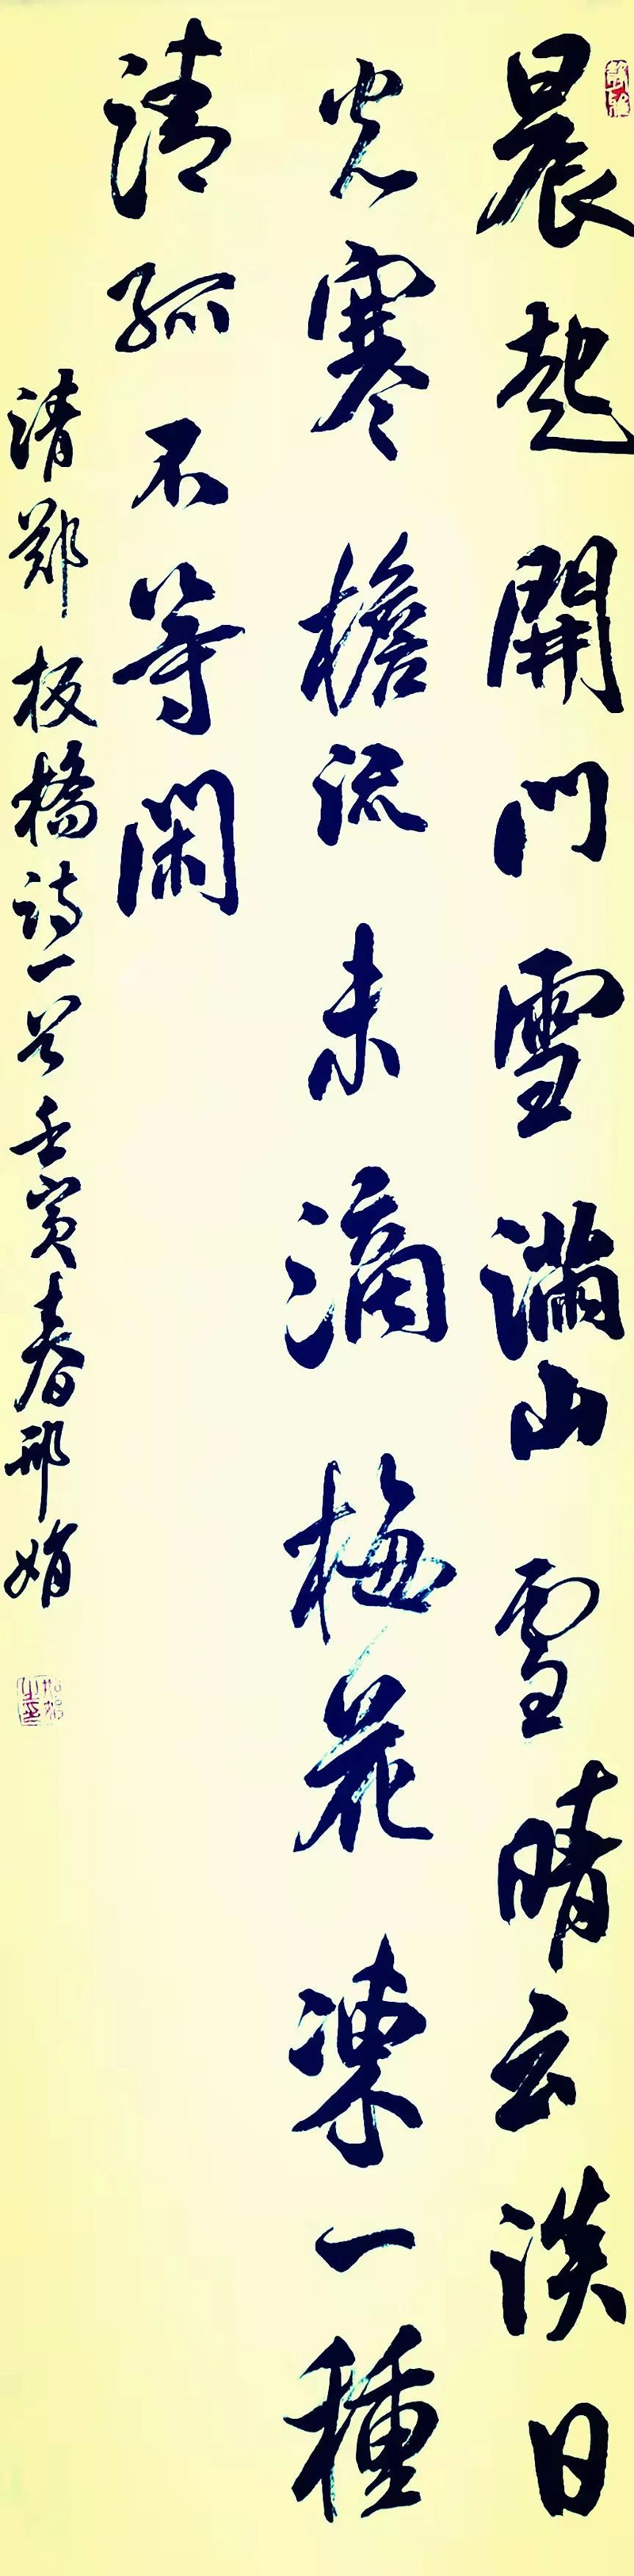 晨起開門雪滿山雪晴云淡日
光寒檐流未滴梅花凍一種
清孤不等閑
清鄭板橋詩一首壬寅春邢娟